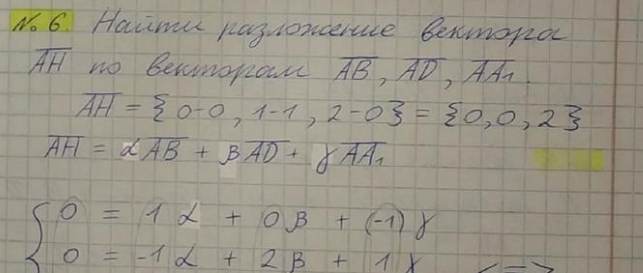 № 6. Найти разложение вектора
AH по векторам AB, AD, AA₁.
AH = {0-0, 1-1, 2-0} = {0, 0, 2}
AH = αAB + βAD + γAA₁
0 = 1α + 0β + (-1)γ
0 = -1α + 2β + 1γ <=>